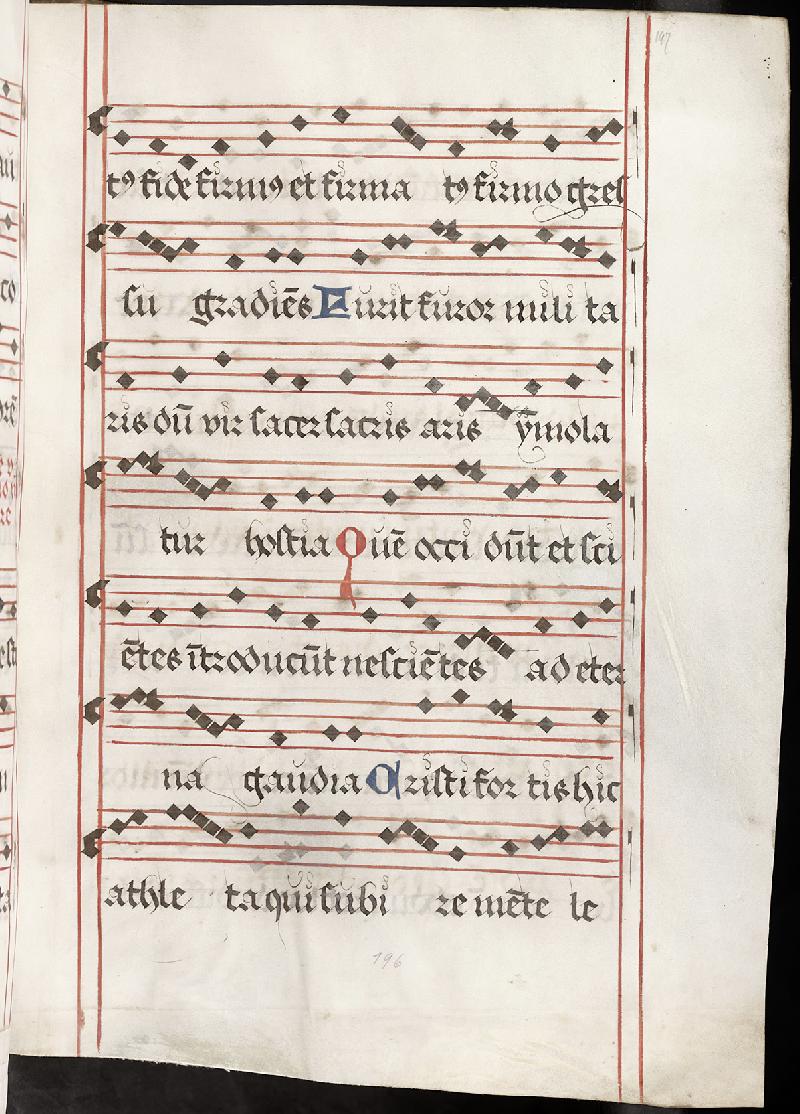 197
t9 fide firmi9 et firma t9 firmo gres
su gradiēs Furit furor mili ta
ris dū vir sacer sacris aris ỹmola
tur hostia Quē occi dūt et sci
ētes ītroducūt nesciētes ad eter
na gaudia Cristi for tis hic
athle ta qui subi re mēte le
196